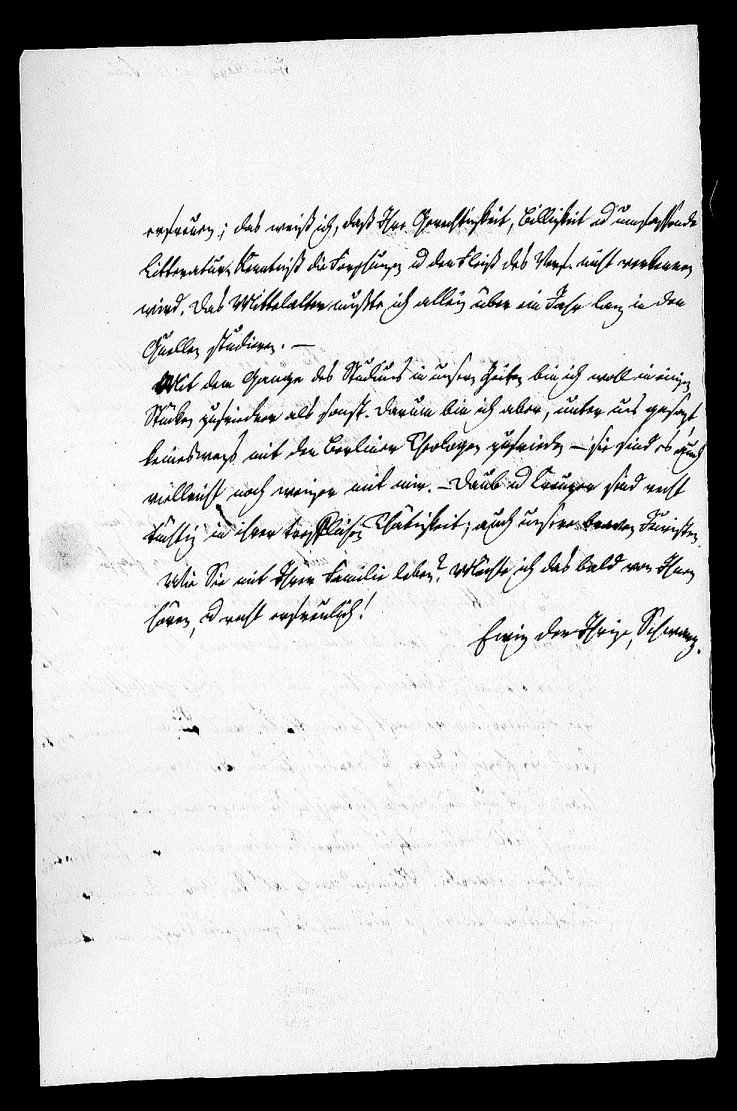 erfreuen; das weiß ich, daß Ihre Gerechtigkeit, Billigkeit u umfassende
Litteratur-Kenntniß die Forschungen u den Fleiß des Verf. nicht verkennen
wird. Das Mittelalter mußte ich allein über ein Jahr lang in den
Quellen studieren. —
Mit dem Gange des Studiums in unsern Zeiten bin ich wohl in einigen
Stücken zufriedener als sonst. Darum bin ich aber, unter uns gesagt
keineswegs mit den Berliner Theologen zufrieden — sie sind es auch
vielleicht noch weniger mit mir. — Daub u Creuzer sind recht
tüchtig in ihrer trefflichen Thätigkeit; auch unsere Juristen.
Wie Sie mit Ihrer Familie leben? Möchte ich das bald von Ihnen
hören, u recht erfreulich!
Ewig der Ihrige, Schwarz.